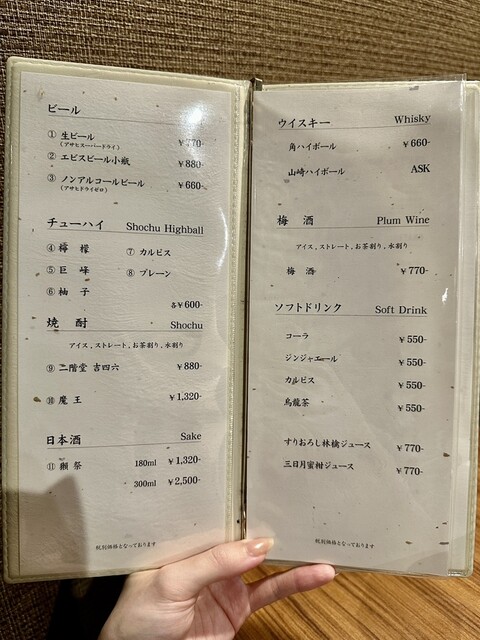 ビール
① 生ビール ￥770-
(アサヒスーパードライ)
② エビスビール小瓶 ￥880-
③ ノンアルコールビール ￥660-
(アサヒドライゼロ)
チューハイ Shochu Highball
④ 檸檬 ⑦ カルピス
⑤ 巨峰 ⑧ プレーン
⑥ 柚子
各￥600-
焼酎 Shochu
アイス、ストレート、お茶割り、水割り
⑨ 二階堂 吉四六 ￥880-
⑩ 魔王 ￥1,320-
日本酒 Sake
⑪ 獺祭 180ml ￥1,320-
300ml ￥2,500-
税別価格となっております
ウイスキー Whisky
角ハイボール ￥660-
山崎ハイボール ASK
梅酒 Plum Wine
アイス、ストレート、お茶割り、水割り
梅酒 ￥770-
ソフトドリンク Soft Drink
コーラ ￥550-
ジンジャエール ￥550-
カルピス ￥550-
烏龍茶 ￥550-
すりおろし林檎ジュース ￥770-
三日月蜜柑ジュース ￥770-
税別価格となっております